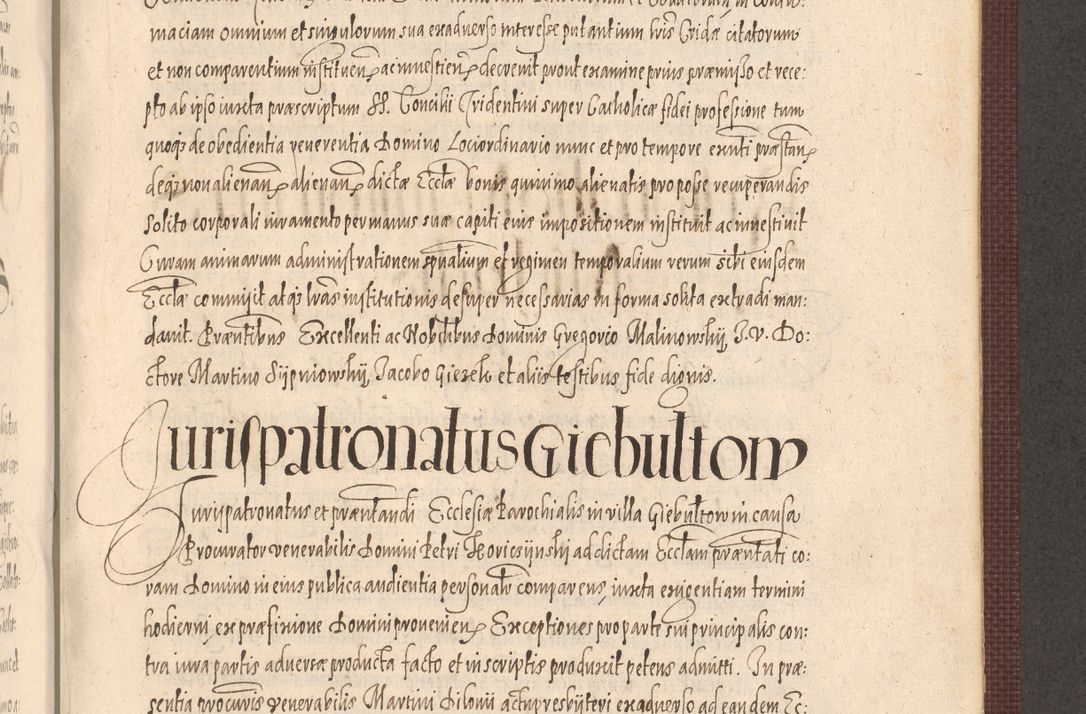 maciam omnium et singulorum sua exadverso interesse putantium lr̃is Cridæ citatorum
et non comparentium instituen̄ ac investien̄ decrevit prout examine prius præmisso et rece-
pto ab ipso iuxta præscriptum SS. Concilii Tridentini super Catholicæ fidei professione tum
quoq̃ de obedientia reverentia Domino Lociordinario nunc et pro tempore exñti præstan̄
deq̃ non alienan̄ alienan̄ dictæ Ecclæ bonis quinimo alienatis pro posse recuperandis
solito corporali iuramento per manus suæ capiti eius impositionem instituit ac investivit
Curam animarum administrationem spñalium et regimen temporalium rerum sibi eiusdem
Ecclæ commisit atq̃ lrãs institutionis desuper necessarias in forma solita extradi man-
davit. Præñtibus Excellenti ac Nobilibus Dominis Gregorio Malinowskij, J. V. Do:
ctore Martino Sijpniowskij, Jacobo Gierek et aliis testibus fide dignis.
Jurispatronatus Giebultow
Jurispatronatus et præñtandi Ecclesiæ Parochialis in villa Giebultow in causa
Procurator venerabilis Domini Petri Skoricsijnskij ad dictam Ecclãm præñtati co:
ram Domino in eius publica audientia personalr̃ comparens, iuxta exigentiam termini
hodierni, ex præfixione Domini provenien̄ Exceptiones pro parte sui principalis con:
tra iura partis adversæ producta facto et in scriptis produxit petens admitti. In præ:
sentia procuris venerabilis Martini Silonii actu presbijteri exadverso ad eandem Ec: